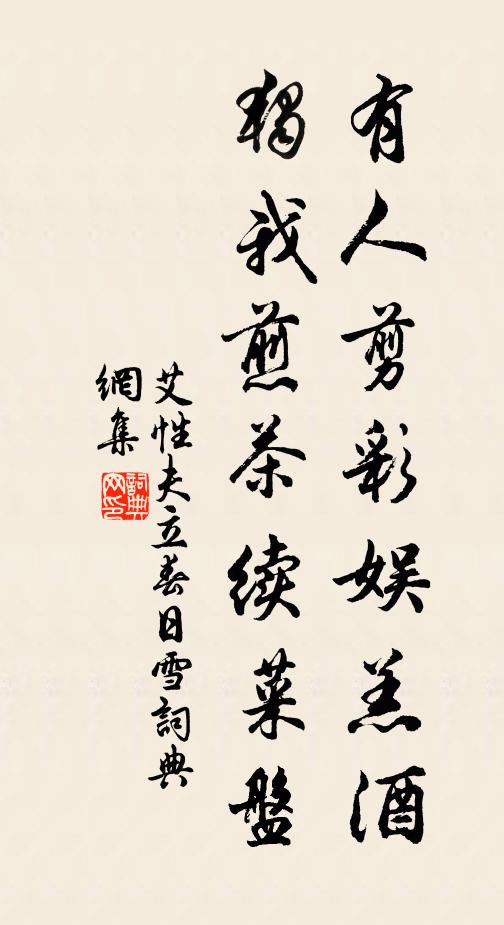 有人剪彩娱羔酒
獨我煎茶续菜盤
艾性夫立春日雪詞典
網集
詞典
网印